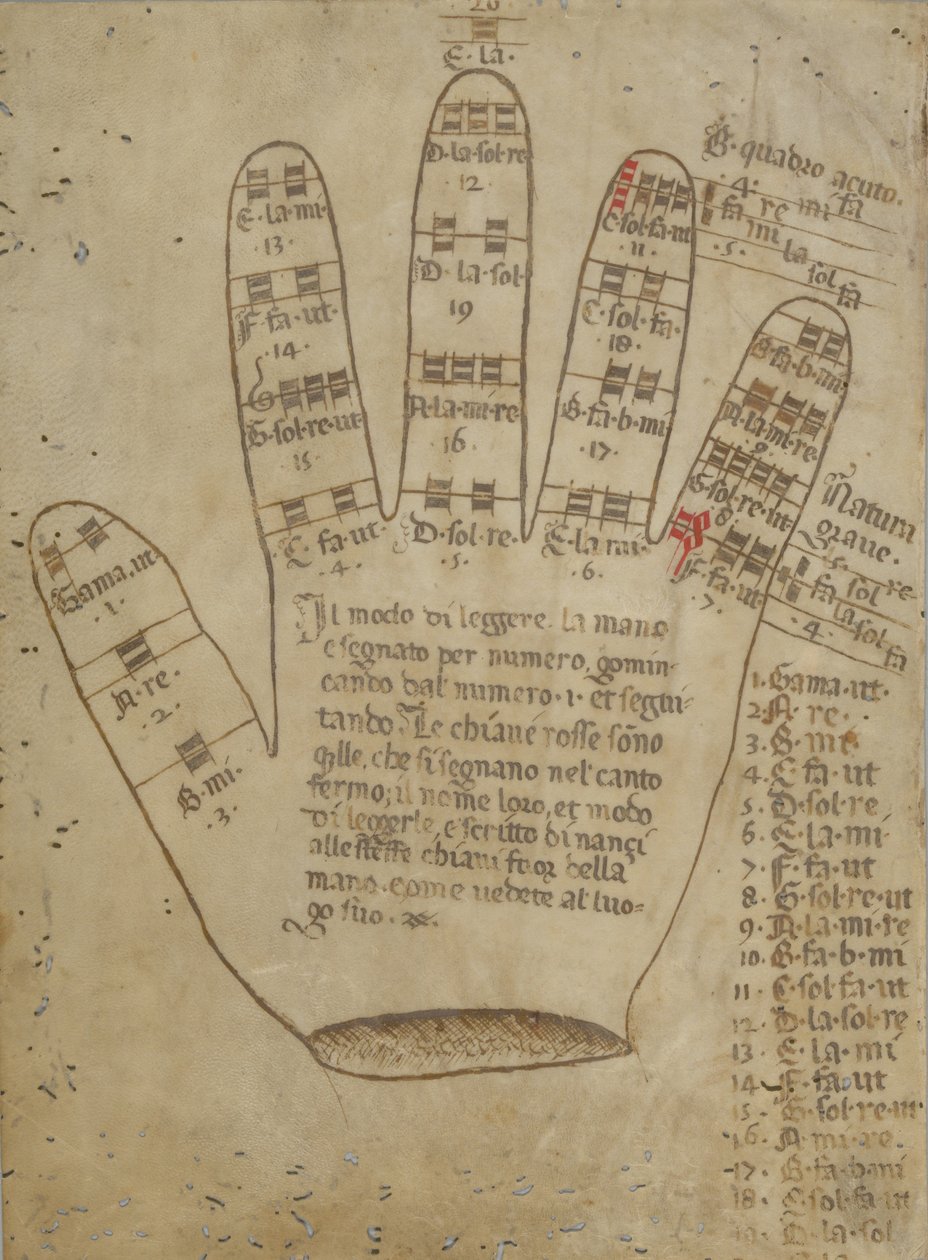 20
E·la·
D·la·sol·re
12
E·la·mi·
·13·
D·la·sol·
19
F·fa·ut·
·14·
G
G·sol·re·ut·
15
A·la·mi·re
·16·
C·fa·ut·
·4·
D·sol·re·
·5·
C·sol·fa·ut
11·
C·sol·fa·
·18·
B·fa·b·mi
·17·
E·la·mi·
·6·
B·quadro acuto·
·4·
fa re mi fa
mi
·5·
la
sol
fa
B·fa·b·mi·
A·la·mi·re·
9·
G·sol·re·ut·
8·
F·fa·ut·
·7·
Natura
graue·
5·
fa sol re
la
sol
fa
·4·
Gama·ut
1·
A·re·
·2·
B·mi·
·3·
Il modo di leggere la mano
e segnato per numero, gomin-
cando dal numero·1· et segui-
tando. Le chiaue rosse sono
qlle, che si segnano nel canto
fermo; il nome loro, et modo
di leggerle, e scritto di nançi
alle stesse chiaui fuor della
mano·come uedete al luo=
go suo·
1·Gama·ut·
2·A·re·
3·B·mi·
4·C·fa·ut
5·D·sol·re
6·E·la·mi
·7·F·fa·ut
8·G·sol·re·ut
9·A·la·mi·re
10·B·fa·b·mi
11·C·sol·fa·ut
12·D·la·sol·re
13·E·la·mi
14·F·fa·ut
15·G·sol·re·ut·
16·A·mi·re·
17·B·fa·b·mi
18·C·sol·fa·ut
19·D·la·sol